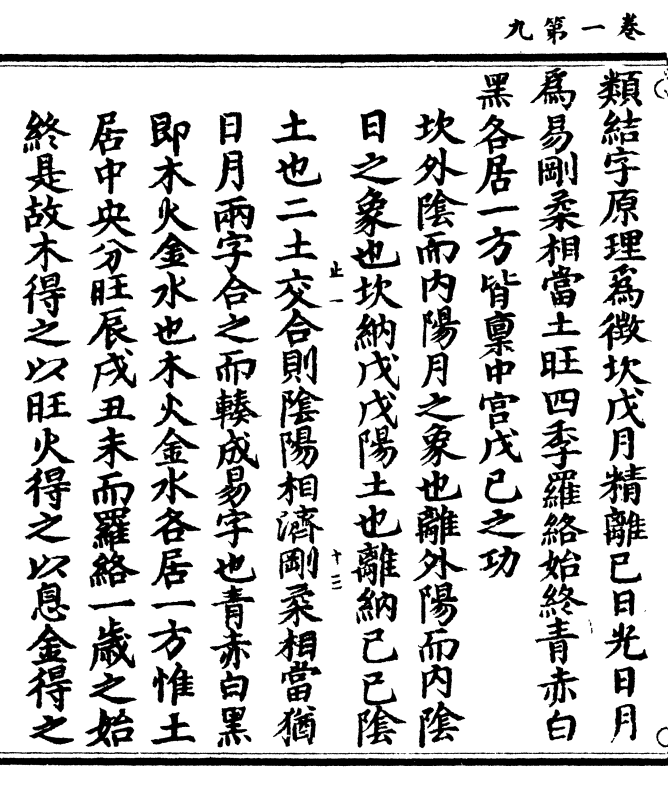 卷一第九
類結字原理爲徵坎戊月精離已日光日月
爲易剛柔相當土旺四季羅絡始終青赤白
黑各居一方皆稟中宮戊已之功
坎外陰而內陽月之象也離外陽而內陰
日之象也坎納戊戊陽土也離納已已陰
止一
十三
土也二土交合則陰陽相濟剛柔相當猶
日月兩字合之而輳成易字也青赤白黑
即木火金水也木火金水各居一方惟土
居中央分旺辰戌丑未而羅絡一歲之始
終是故木得之以旺火得之以息金得之